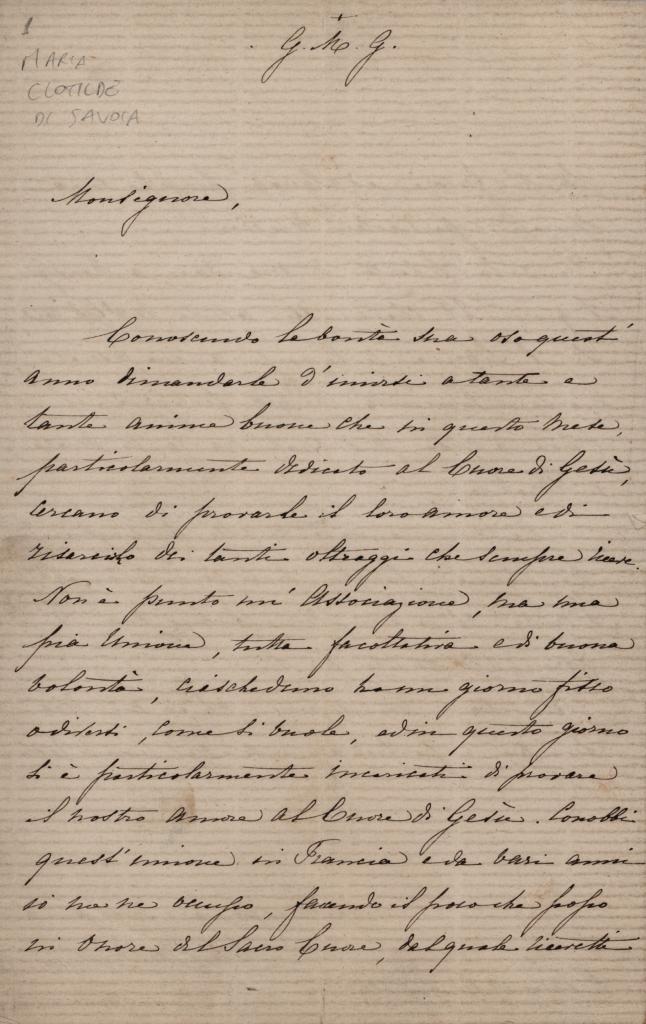 1
MARIA
CLOTILDE
DI SAVOIA
G. M. G.
Monsignore,
Conoscendo la bontà sua oso quest'
anno dimandarle d'unirsi a tante e
tante anime buone che in questo mese,
particolarmente dedicato al Cuore di Gesù,
cercano di provarle il loro amore e di
risarcirlo dei tanti oltraggi che sempre riceve.
Non è punto un' Associazione, ma una
pia Unione, tutta facoltativa e di buona
volontà, ciascheduno ha un giorno fisso
o diversi, come si vuole, ed in questo giorno
si è particolarmente incaricati di provare
il nostro amore al Cuore di Gesù. Conobbi
quest'unione in Francia e da vari anni
io me ne occupo, facendo il poco che posso
in onore del Sacro Cuore, dal quale ricevetti